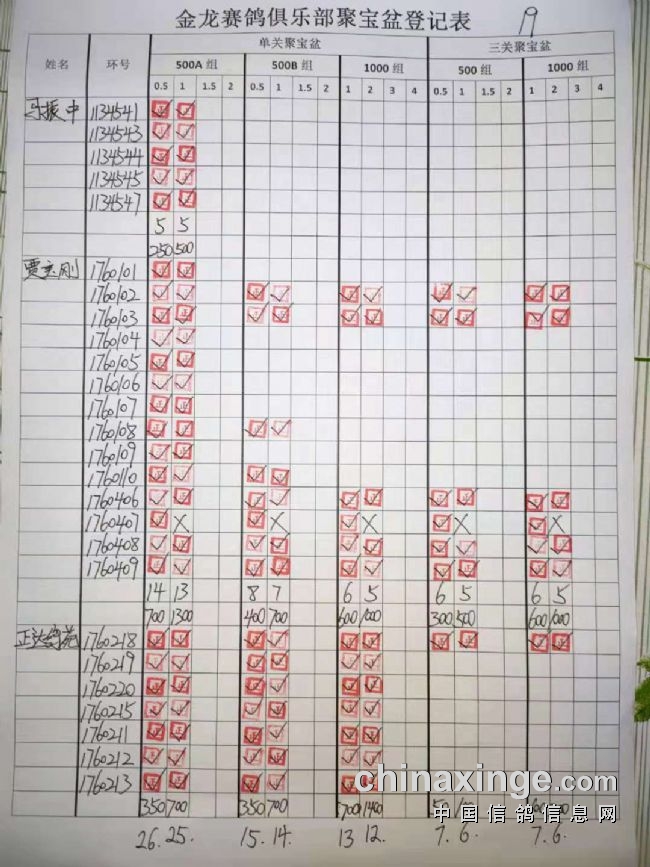 金龙赛鸽俱乐部聚宝盆登记表 19
姓名 环号 单关聚宝盆 三关聚宝盆
500A 组 500B 组 1000 组 500 组 1000 组
0.5 1 1.5 2 0.5 1 1.5 2 1 2 3 4 0.5 1 1.5 2 1 2 3 4
马振中 1134541
1134543
1134544
1134545
1134547
5 5
250 500
1760101
1760102
1760103
1760104
1760105
1760106
1760107
1760108
1760109
1760110
1760406
1760407
1760408
1760409
14 13 8 7 6 5 6 5 6 5
700 1300 400 700 600 1000 300 500 600 1000
1760218
1760219
1760220
1760215
1760211
1760212
1760213
350 700 350 700 700 1400 50
26. 25. 15. 14. 13 12. 7. 6. 7. 6.
chinaxinge.com
中国信鸽信息网